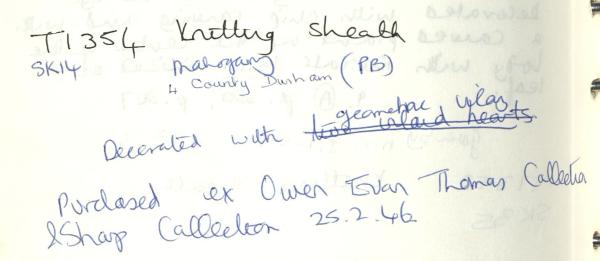 T1354 Knitting Sheath
SK14 mahogany (PB)
4 County Durham
geometric inlay
Decorated with two inlaid hearts
Purchased ex Owen Evan Thomas Collection
& Sharp Collection 25.2.46